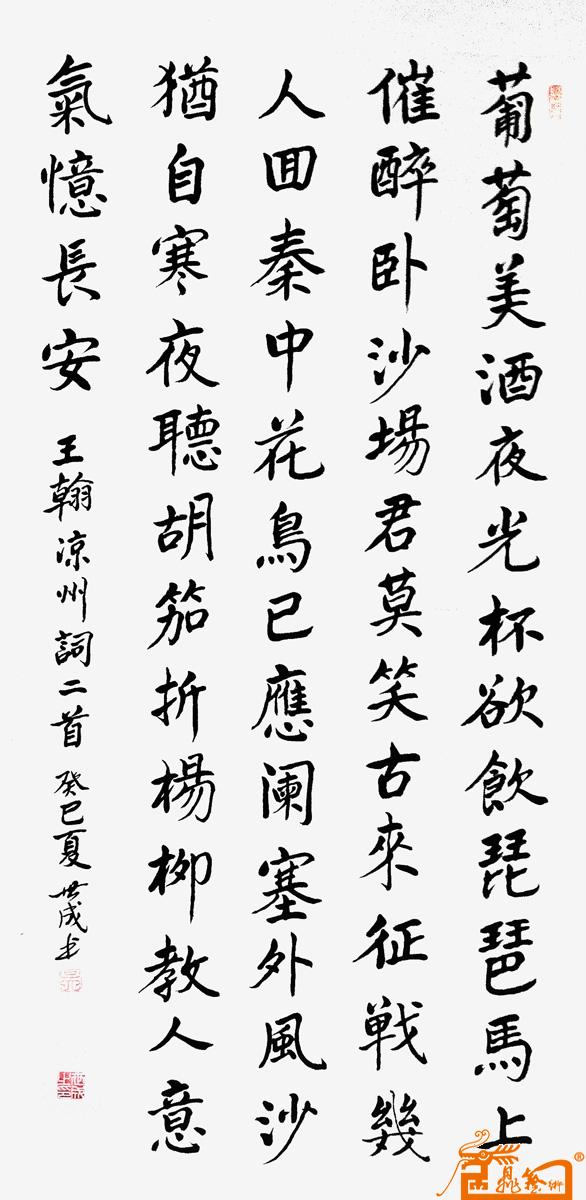 葡萄美酒夜光杯欲飲琵琶馬上
催醉卧沙場君莫笑古來征戦幾
人囬秦中花鳥已應阑塞外風沙
猶自寒夜聽胡笳折楊柳教人意
氣憶長安 王翰凉州詞二首 癸巳夏 世成书